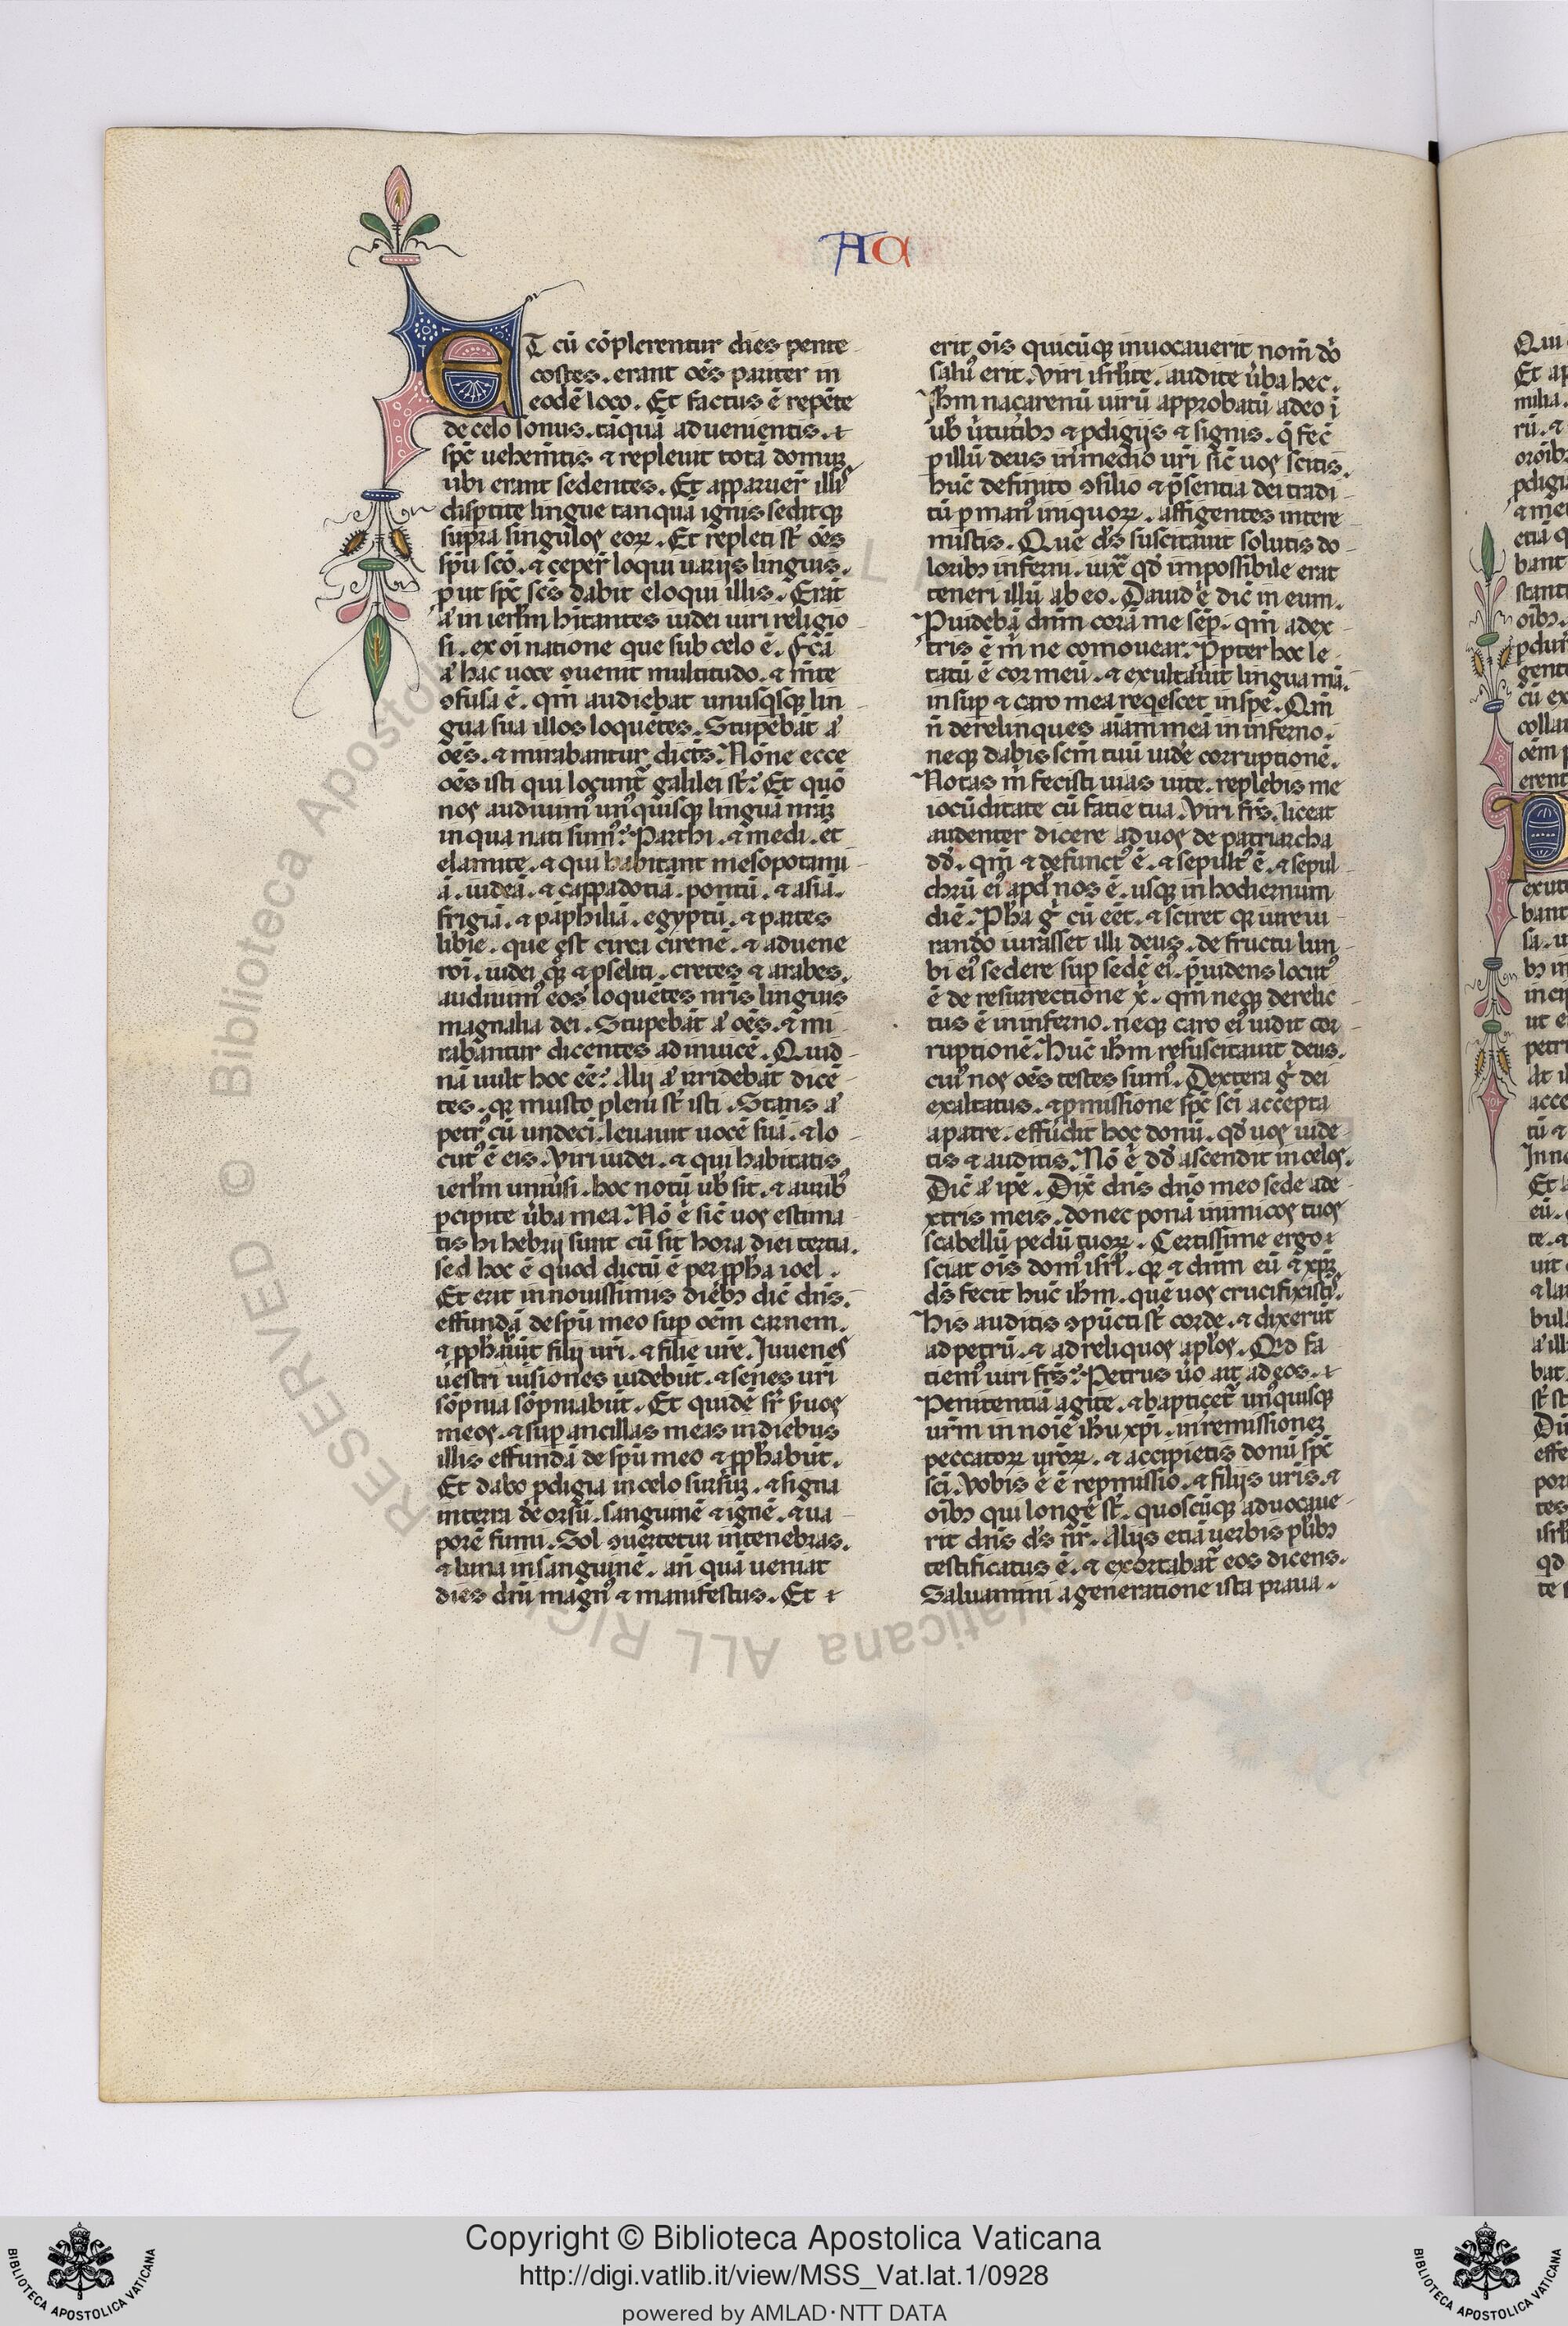 Aa
ET cū cōplerentur dies pente
costes. erant oēs pariter in
eodē loco. Et factus ē repēte
de celo sonus. tāquā aduenientis. ⁊
spc̄ uehemētis ⁊ repleuit totā domuꝫ
ubi erant sedentes. Et apparuer̄ illis
disptite lingue tanquā ignis seditqꝫ
supra singulos eoꝝ. Et repleti st̄ oēs
spū scō. ⁊ ceper̄ loqui uarijs linguis.
ꝓut spc̄ scs̄ dabit eloqui illis. Erāt
aꝰ in ierlm̄ hītantes iudei uiri religio
si. ex oī natione que sub celo ē. Fcā
aꝰ hac uoce ↄuenit multitudo. ⁊ mēte
ↄfusa ē. qm̄ audiebat unusqsqꝫ lin
gua sua illos loquētes. Stupebāt aꝰ
oēs. ⁊ mirabantur dictīs. Nōne ecce
oēs isti qui locunt̄ galilei st̄. Et quō
nos audiuimꝰ unꝰquisqꝫ linguā nr̄aꝫ
in qua nati sumꝰ. Parthi. ⁊ medi. et
elamite. ⁊ qui habitant mesopotami
ā. iudeā. ⁊ cappadotiā. pontū. ⁊ asiā.
frigiā. ⁊ pāphiliā. egyptū. ⁊ partes
libie. que est circa cirenē. ⁊ aduene
roī. iudei qꝫ ⁊ ꝓseliti. cretes ⁊ arabes.
audiuimꝰ eos loquētes nr̄is linguis
magnalia dei. Stupebāt aꝰ oēs. ⁊ mi
rabantur dicentes ad inuicē. Quid
nā uult hoc eē. Alij aꝰ irridebāt dicē
tes. qꝛ musto pleni st̄ isti. Stans aꝰ
petrꝰ cū undeci. leuauit uocē suā. ⁊ lo
cutꝰ ē eis. Viri iudei. ⁊ qui habitatis
ierlm̄ uniūsi. hoc notū ub̄ sit. ⁊ auribꝰ
pcipite ūba mea. Nō .n. sic̄ uos estima
tis hi hebrij sunt cū sit hora diei tertia.
sed hoc ē quod dictū ē per ꝓph̄a ioel.
Et erit in nouissimis diebꝫ dic̄ dn̄s.
effundā de spū meo sup oēm carnem.
⁊ ꝓph̄abūt filij uri. ⁊ filie ure. Juuenes
uestri uisiones uidebūt. ⁊ senes uri
sōpnia sōpniabūt. Et quidē sr̄ ꝰuos
meos. ⁊ sup ancillas meas in diebus
illis effundā de spū meo ⁊ ꝓph̄abūt.
Et dabo ꝓdigia in celo sursūꝫ. ⁊ signa
in terra de orsū. sanguinē ⁊ ignē. ⁊ ua
porē fumi. Sol ↄuertetur in tenebras.
⁊ luna in sanguinē. an̄ quā ueniat
dies dn̄i magnꝰ ⁊ manifestus. Et ⁊
erit ois̄ quicūqꝫ inuocauerit nom̄ dō
saluꝰ erit. Viri isrlite. audite ūba hec.
Ih̄m naçarenū uirū approbatū a deo ī
ub̄ ūtutibꝫ ⁊ ꝓdigijs ⁊ signis. q̄ fec̄
ꝑ illū deus in medio uri sic̄ uos scitis.
hūc definito ↄsilio ⁊ p̄sentia dei tradi
tū ꝑ manꝰ iniquoꝝ. affigentes intere
mistis. Quē ds̄ suscitauit solutis do
loribꝫ inferni. iuxͣ qd̄ impossibile erat
teneri illū ab eo. Dauid .n. dic̄ in eum.
Puidebā dnm̄ corā me sēp. qm̄ a dex
tris ē m̄ ne comouear. Ppter hoc le
tatū ē cor meū. ⁊ exultauit lingua mā.
insup ⁊ caro mea reqescet in spe. Qm̄
n̄ derelinques aīam meā in inferno.
neqꝫ dabis scm̄ tuū uidē corruptionē.
Notas m̄ fecisti uias uite. replebis me
iocūditate cū facie tua. Viri frs̄. liceat
audenter dicere ad uos de patriarcha
dd̄. qm̄ ⁊ defunctꝰ ē. ⁊ sepultꝰ ē. ⁊ sepul
chrū eiꝰ apd̄ nos ē. usqꝫ in hodiernum
diē. Ph̄a g͛ cū eēt. ⁊ sciret qꝛ iureiu
rando iurasset illi deus. de fructu lum
bi eiꝰ sedere sup sedē eiꝰ. p̄uidens locutꝰ
ē de resurrectione x͛. qm̄ neqꝫ derelic
tus ē in inferno. neqꝫ caro eiꝰ uidit cor
ruptionē. Hūc ih̄m resuscitauit deus.
cuiꝰ nos oēs testes sumꝰ. Dextera g͛ dei
exaltatus. ⁊ ꝓmissione spc̄ sci accepta
a patre. effūdit hoc donū. qd̄ uos uide
tis ⁊ auditis. Nō .n. dd̄ ascendit in celos.
Dic̄ aꝰ ipē. Dix̄ dn̄s dn̄o meo sede a de
xtris meis. donec ponā inimicos tuos
scabellū pedū tuoꝝ. Certissime ergo ⁊
sciat ois̄ domꝰ isrl̄. qꝛ ⁊ dnm̄ eū ⁊ xp̄ꝫ
ds̄ fecit hūc ih̄m. quē uos crucifixistis.
His auditis ↄpūcti st̄ corde. ⁊ dixerūt
ad petrū. ⁊ ad reliquos apl̄os. Qd̄ fa
ciemꝰ uiri frs̄. Petrus ūo ait ad eos. ⁊
Penitentiā agite. ⁊ baptiçet̄ unꝰquisqꝫ
urm̄ in noīe ih̄u xp̄i. in remissioneꝫ
peccatoꝝ uroꝝ. ⁊ accipietis donū spc̄
sci. Vobis .n. ē repmissio. ⁊ filijs uris. ⁊
oībꝫ qui longe st̄. quoscūqꝫ aduocaue
rit dn̄s ds̄ nr̄. Alijs etiā uerbis pl̄ibꝫ
testificatus ē. ⁊ exortabat̄ eos dicens.
Saluamini a generatione ista praua.
Copyright © Biblioteca Apostolica Vaticana
http://digi.vatlib.it/view/MSS_Vat.lat.1/0928
powered by AMLAD·NTT DATA
BIBLIOTECA APOSTOLICA VATICANA
BIBLIOTECA APOSTOLICA VATICANA